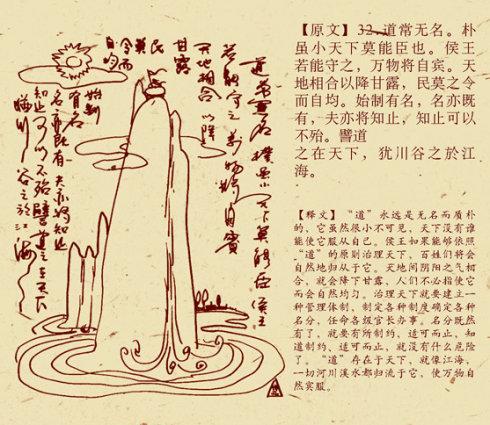 【原文】32. 道常无名。朴
虽小天下莫能臣也。侯王
若能守之，万物将自宾。天
地相合以降甘露，民莫之令
而自均。始制有名，名亦既
有，夫亦将知止，知止可以
不殆。譬道
之在天下，犹川谷之於江
海。
【释文】“道”永远是无名而质朴
的，它虽然很小不可见，天下没有谁
能使它服从自己。侯王如果能够依照
“道”的原则治理天下，百姓们将会
自然地归从于它。天地间阴阳之气相
合，就会降下甘露，人们不必指使它
而会自然均匀。治理天下就要建立一
种管理体制，制定各种制度确定各种
名分，任命各级官长办事。名分既然
有了，就要有所制约，适可而止，知
道制约、适可而止，就没有什么危险
了。“道”存在于天下，就像江海，
一切河川溪水都归流于它，使万物自
然宾服。
道常無名樸雖小天下莫能臣侯王
若能守之萬物將自賓
天地相合以降
甘露
民莫
令而
自均
始制
有名
名亦既有夫亦将知止
知止可以不殆譬道之在天下
猶川谷之於江海